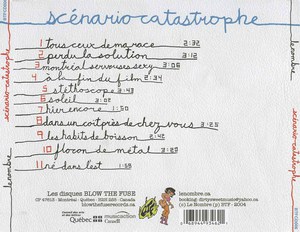 scénario catastrophe
1 tous ceux de ma race 2:32
2 perdu la solution 3:12
3 montréal nerveuse sexy 3:06
4 à la fin du film 3:34
5 stéthoscope 3:43
6 soleil 3:02
7 hier encore 1:50
8 dans un coit près de chez vous 3:25
9 les habits de boisson 2:42
10 flocon de metal 3:20
11 né dans lest 1:59
lenombre
scénario catastrophe
lenombre
scénario catastrophe
Les disques BLOW THE FUSE
Montréal - Québec
Canada
blowthefuserecords.ca
lenombre.ca
booking: dirtysweetmusic@yahoo.ca
(c) Le Nombre (p) BTF - 2004
Québec
musicaction
Canada